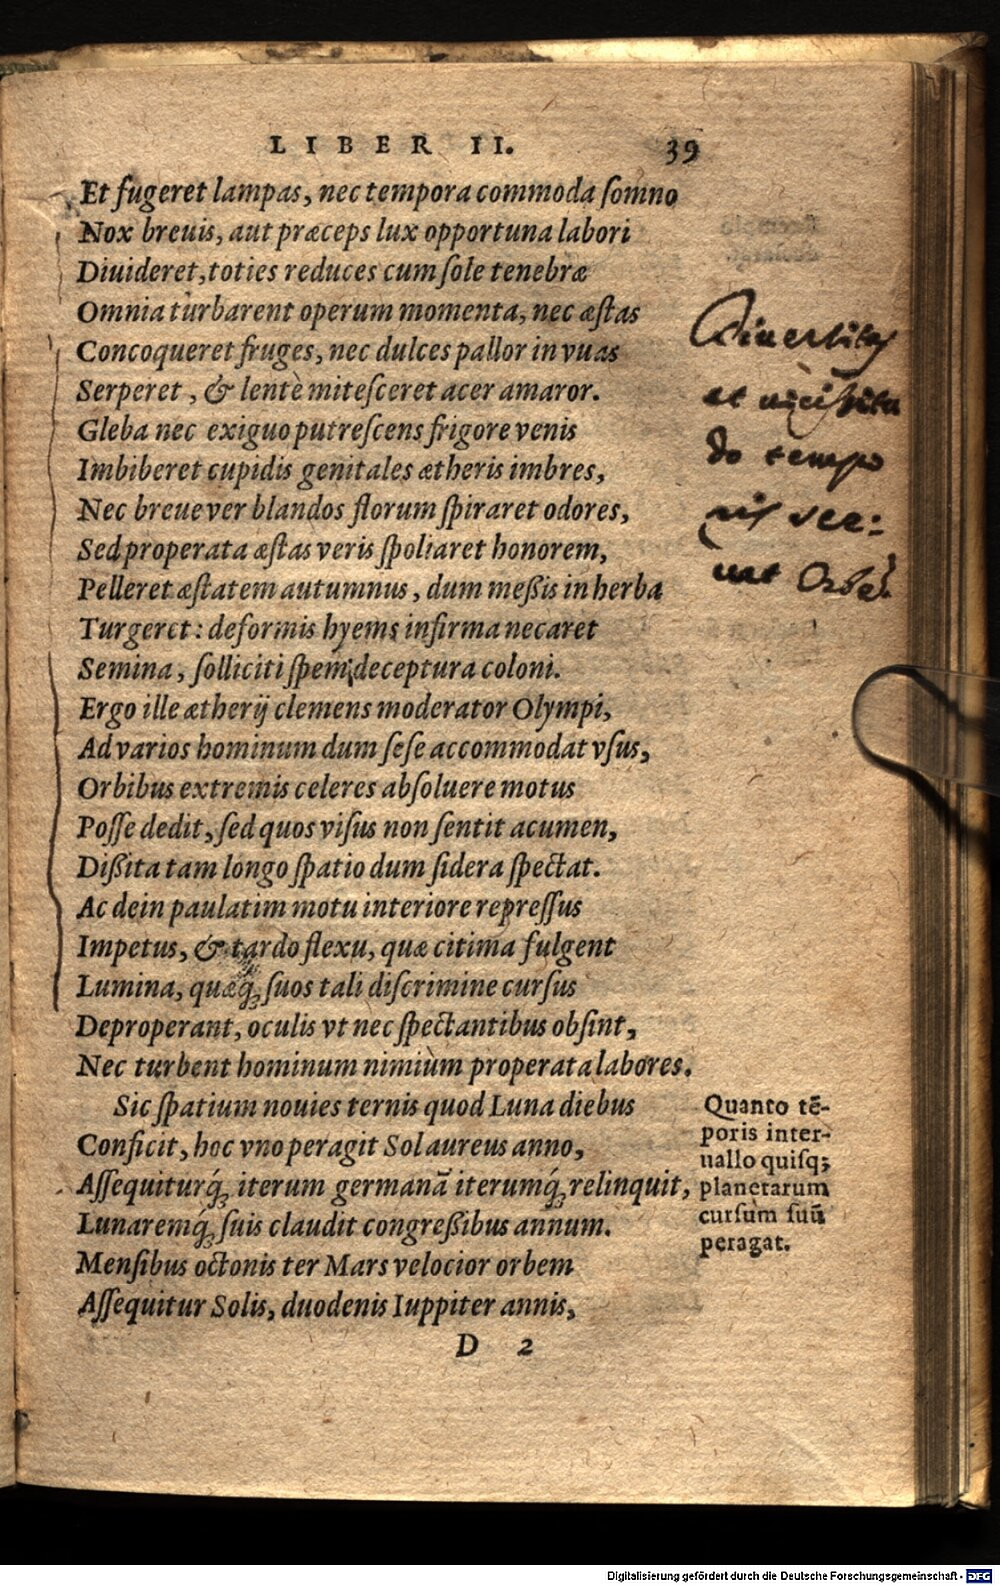 LIBER II. 39
Et fugeret lampas, nec tempora commoda ſomno
Nox breuis, aut præceps lux opportuna labori
Diuideret, toties reduces cum ſole tenebræ
Omnia turbarent operum momenta, nec æſtas
Concoqueret fruges, nec dulces pallor in vuas
Serperet, & lentè miteſceret acer amaror.
Gleba nec exiguo putreſcens frigore venis
Imbiberet cupidis genitales ætheris imbres,
Nec breue ver blandos florum ſpiraret odores,
Sed properata æſtas veris ſpoliaret honorem,
Pelleret æſtatem autumnus, dum meßis in herba
Turgeret: deformis hyems infirma necaret
Semina, ſolliciti ſpem deceptura coloni.
Ergo ille ætherij clemens moderator Olympi,
Ad varios hominum dum ſeſe accommodat vſus,
Orbibus extremis celeres abſoluere motus
Poſſe dedit, ſed quos viſus non ſentit acumen,
Dißita tam longo ſpatio dum ſidera ſpectat.
Ac dein paulatim motu interiore repreſſus
Impetus, & tardo flexu, quæ citima fulgent
Lumina, quæq́ꝫ ſuos tali diſcrimine curſus
Deproperant, oculis vt nec ſpectantibus obſint,
Nec turbent hominum nimiùm properata labores.
Sic ſpatium nouies ternis quod Luna diebus
Conficit, hoc vno peragit Sol aureus anno,
Aſſequiturq́ꝫ iterum germanā iterumq́ꝫ relinquit,
Lunaremq́ꝫ ſuis claudit congreßibus annum.
Menſibus octonis ter Mars velocior orbem
Aſſequitur Solis, duodenis Iuppiter annis,
D 2
Diuersitas
et uicißitu
do tempo
ris ser:
uat Orbē.
Quanto tē-
poris inter-
uallo quiſqꝫ
planetarum
curſum ſuū
peragat.
Digitalisierung gefördert durch die Deutsche Forschungsgemeinschaft - DFG